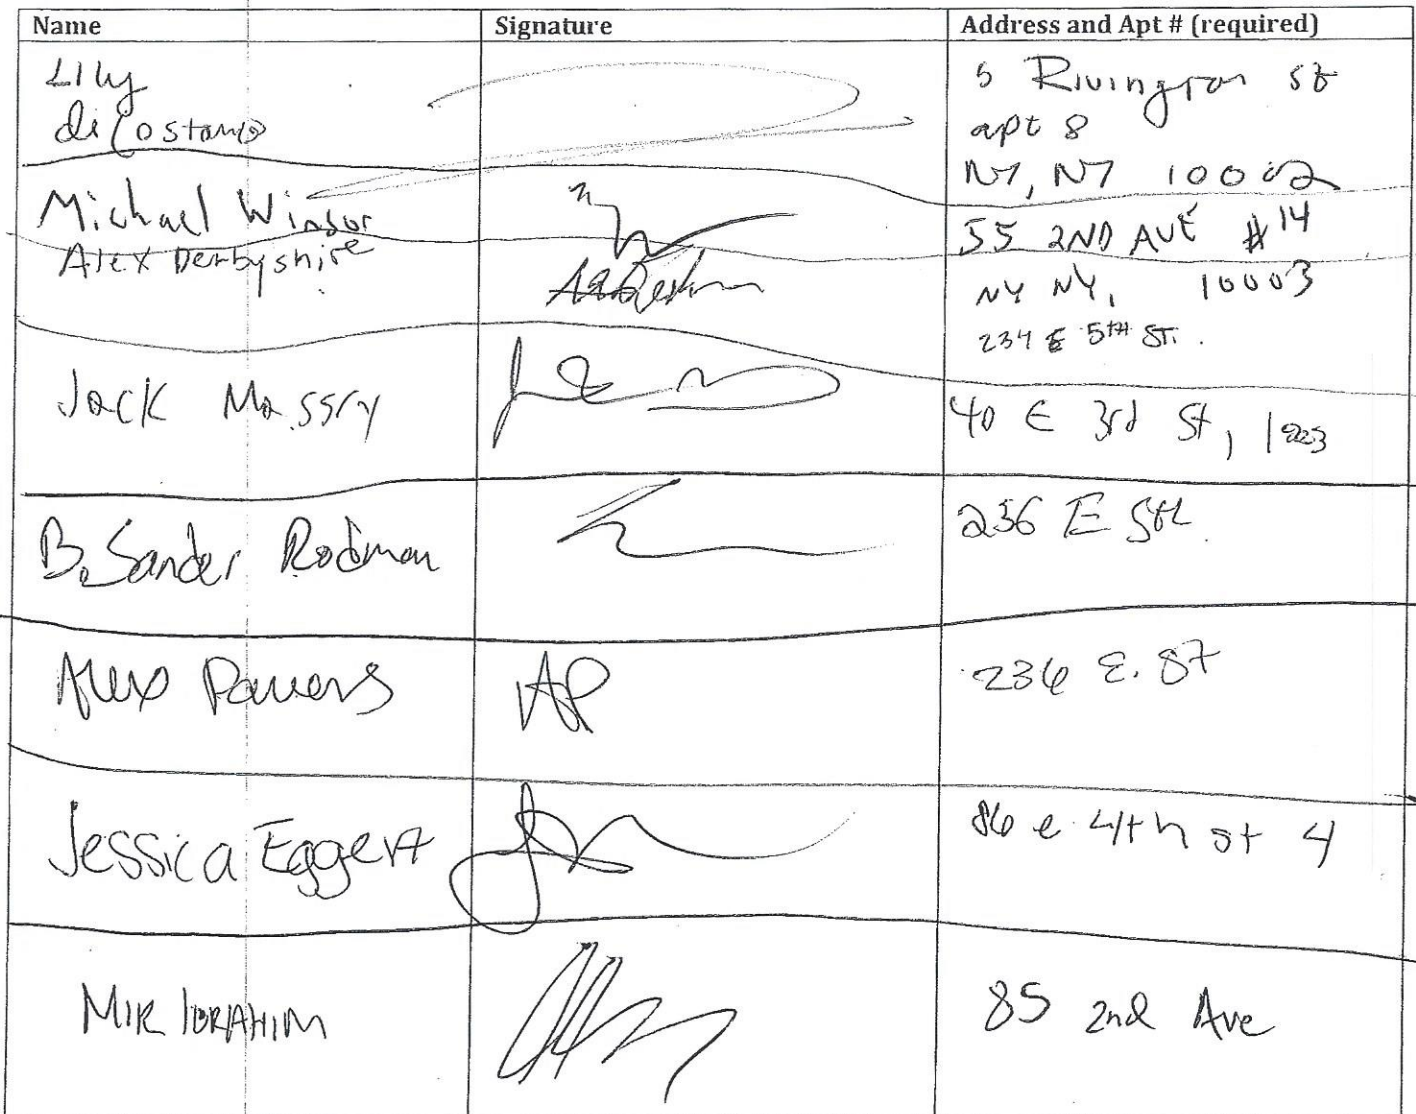 Name Signature Address and Apt # (required)
Lily
di Costanzo
5 Rivington St
apt 8
NY, NY 10002
Michael Winsor
55 2ND AVE #14
NY NY, 10003
Alex Derbyshire
234 E 5TH ST.
Jack Massry
40 E 3rd St, 10003
B. Sander Rodman
236 E 5th
Alex Powers AP
236 E.
Jessica Eggert
86 e 4th st 4
MIR IBRAHIM
85 2nd Ave